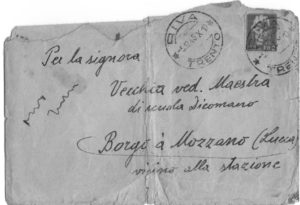 RIVA
TRENTO
TRENTO
Per la signora
Vecchia ved. Maestra
di scuola Dicomano
Borgo à Mozzano (Lucca)
vicino alla stazione